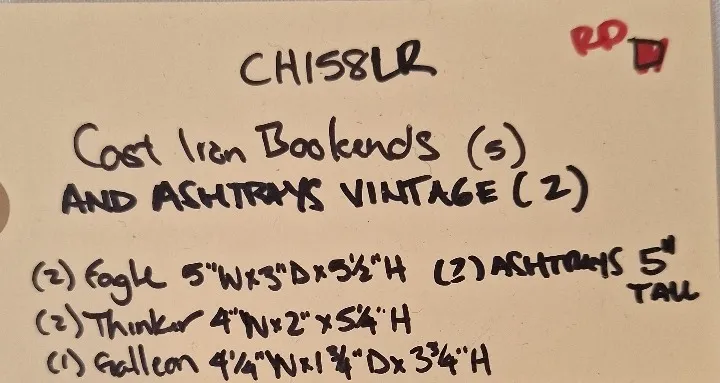 RD
CH158LR
Cast Iron Bookends (5)
AND ASHTRAYS VINTAGE (2)
(2) Eagle 5"W x 3"D x 5½"H (2) ASHTRAYS 5" TALL
(2) Thinker 4"W x 2" x 5¼"H
(1) Galleon 4¼"W x 1¾"D x 3¾"H